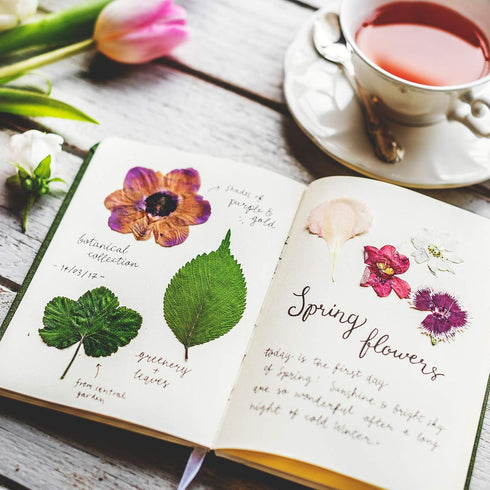 shades of
purple &
gold
botanical
collection
- 14/03/17 -
greenery +
leaves
from central
garden
Spring
flowers
today is the first day
of Spring! Sunshine & bright sky
are so wonderful after a long
night of cold Winter.